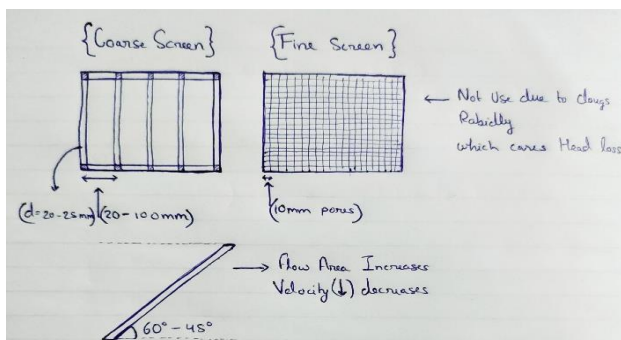 {Coarse Screen}
{Fine Screen}
← Not Use due to clougs
Rabidly
which cares Head loss
(d=20-25mm)
(20-100mm)
(10mm pores)
→ Flow Area Increases
Velocity(↓) decreases
60°-45°